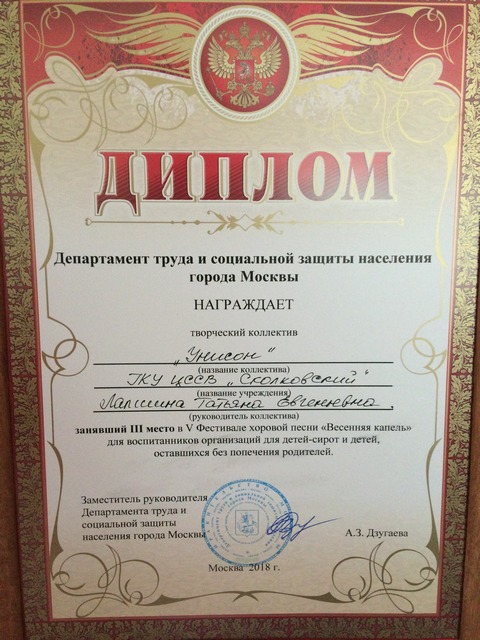 ДИПЛОМ
Департамент труда и социальной защиты населения
города Москвы
НАГРАЖДАЕТ
творческий коллектив
„Унисон“
(название коллектива)
ГКУ ЦССВ „Сколковский“
(название учреждения)
Лапшина Татьяна Евгеньевна,
(руководитель коллектива)
занявший III место в V Фестивале хоровой песни «Весенняя капель»
для воспитанников организаций для детей-сирот и детей,
оставшихся без попечения родителей.
Заместитель руководителя
Департамента труда и
социальной защиты
населения города Москвы
А.З. Дзугаева
Москва 2018 г.